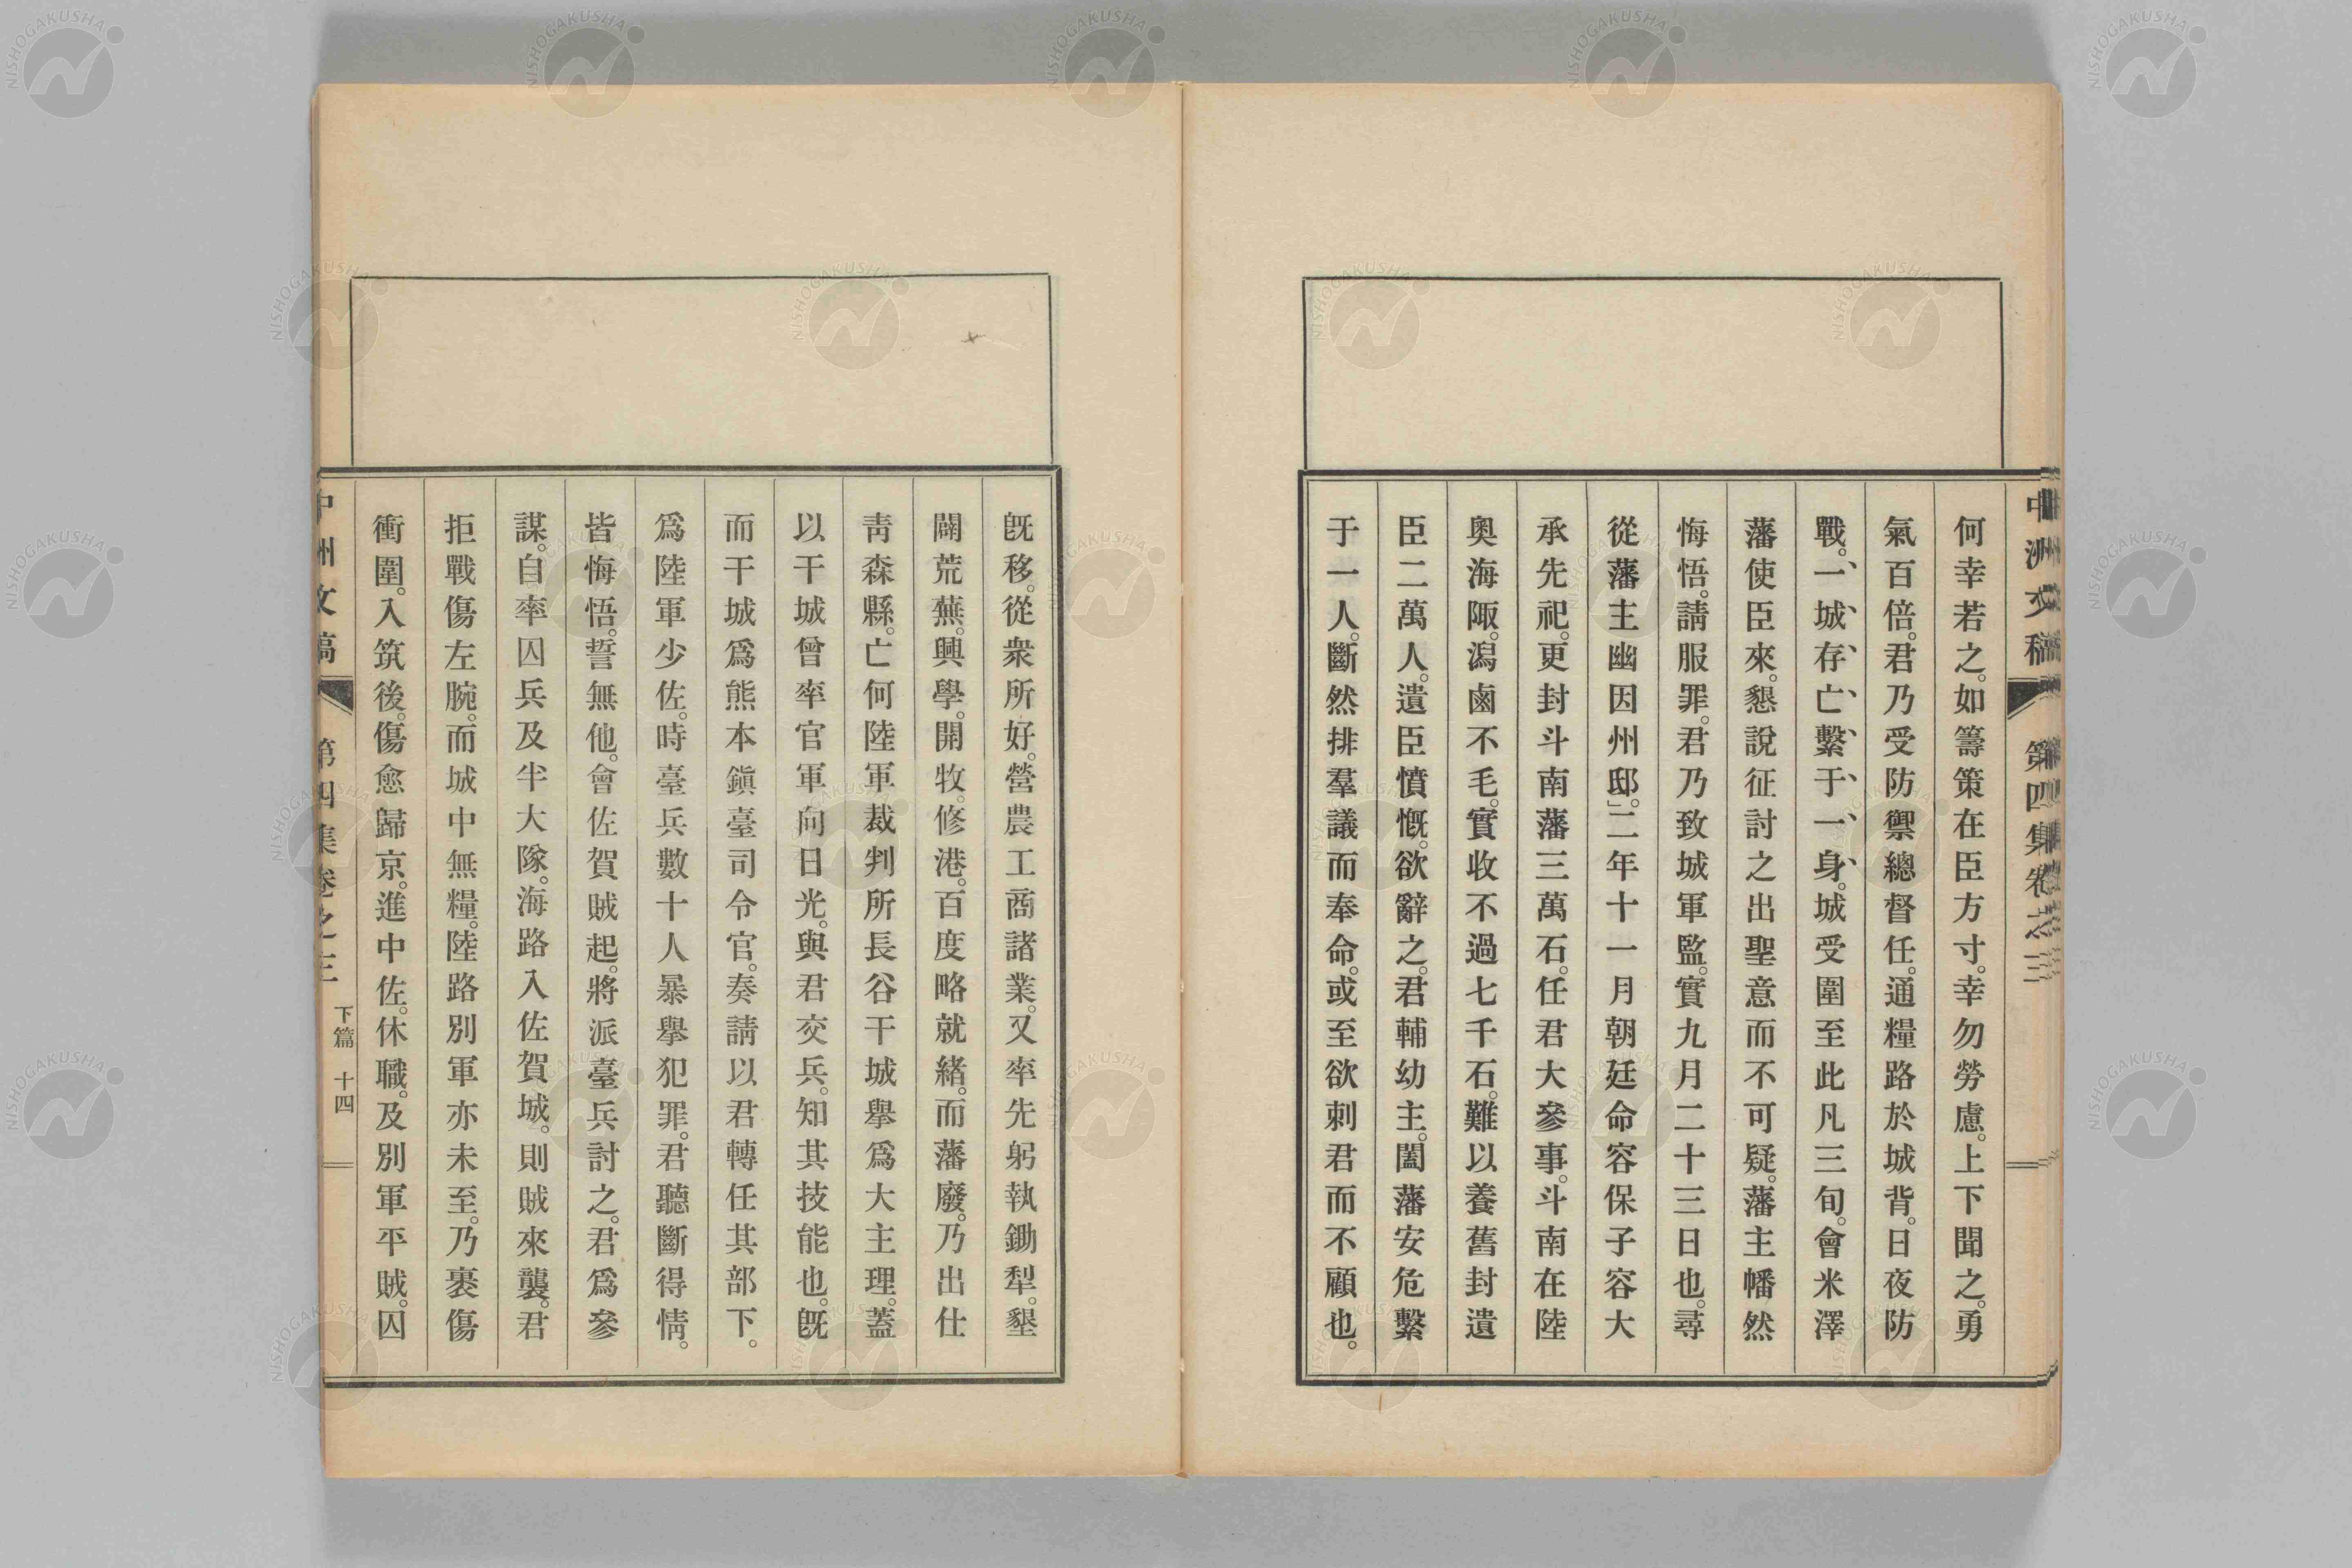 中洲文稿 第四集卷之三
何幸若之。如籌策在臣方寸。幸勿勞慮。上下聞之。勇
氣百倍。君乃受防禦總督任。通糧路於城背。日夜防
戰。一、城、存、亡、繫、于、一、身。城受圍至此凡三旬。會米澤
藩使臣來。懇說征討之出聖意而不可疑。藩主幡然
悔悟。請服罪。君乃致城軍監。實九月二十三日也。尋
從藩主幽因州邸。」二年十一月朝廷命容保子容大
承先祀。更封斗南藩三萬石。任君大參事。斗南在陸
奧海陬。潟鹵不毛。實收不過七千石。難以養舊封遺
臣二萬人。遺臣憤慨。欲辭之。君輔幼主。闔藩安危繫
于一人。斷然排羣議而奉命。或至欲刺君而不顧也。
既移。從衆所好。營農工商諸業。又率先躬執鋤犁。墾
闢荒蕪。興學。開牧。修港。百度略就緒。而藩廢。乃出仕
靑森縣。亡何陸軍裁判所長谷干城擧爲大主理。蓋
以干城曾率官軍向日光。與君交兵。知其技能也。既
而干城爲熊本鎭臺司令官。奏請以君轉任其部下。
爲陸軍少佐。時臺兵數十人暴擧犯罪。君聽斷得情。
皆悔悟。誓無他。會佐賀賊起。將派臺兵討之。君爲參
謀。自率囚兵及半大隊。海路入佐賀城。則賊來襲。君
拒戰傷左腕。而城中無糧。陸路別軍亦未至。乃裹傷
衝圍。入筑後。傷愈歸京。進中佐。休職。及別軍平賊。囚
中洲文稿 第四集卷之三 下篇 十四